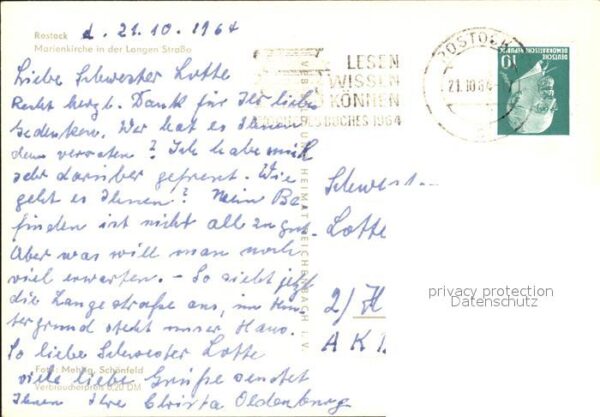 Rostock d. 21.10.1964
Marienkirche in der Langen Straße
Liebe Schwester Lotte
Recht herzl. Dank für Ihr liebes
Gedenken. Wer hat es Ihnen
denn verraten? Ich habe mich
sehr darüber gefreut. Wie
geht es Ihnen? Mein Be
finden ist nicht allzu gut.
Aber was will man noch
viel erwarten. – So sieht jetzt
die Langestraße aus, im Hin
tergrund steht unser Haus.
So liebe Schwester Lotte
viele liebe Grüße sendet
Ihnen Ihre Christa Oldenburg
Foto: Mehlig, Schönfeld
Verbraucherpreis 0,20 DM
BILD UND HEIMAT REICHENBACH I. V.
LESEN
WISSEN
KÖNNEN
BUCHES 1964
ROSTOCK
21.10.64
DEUTSCHE
DEMOKRATISCHE REPUBLIK
10
Schwest
Lotte
2/H
AKI.
privacy protection
Datenschutz